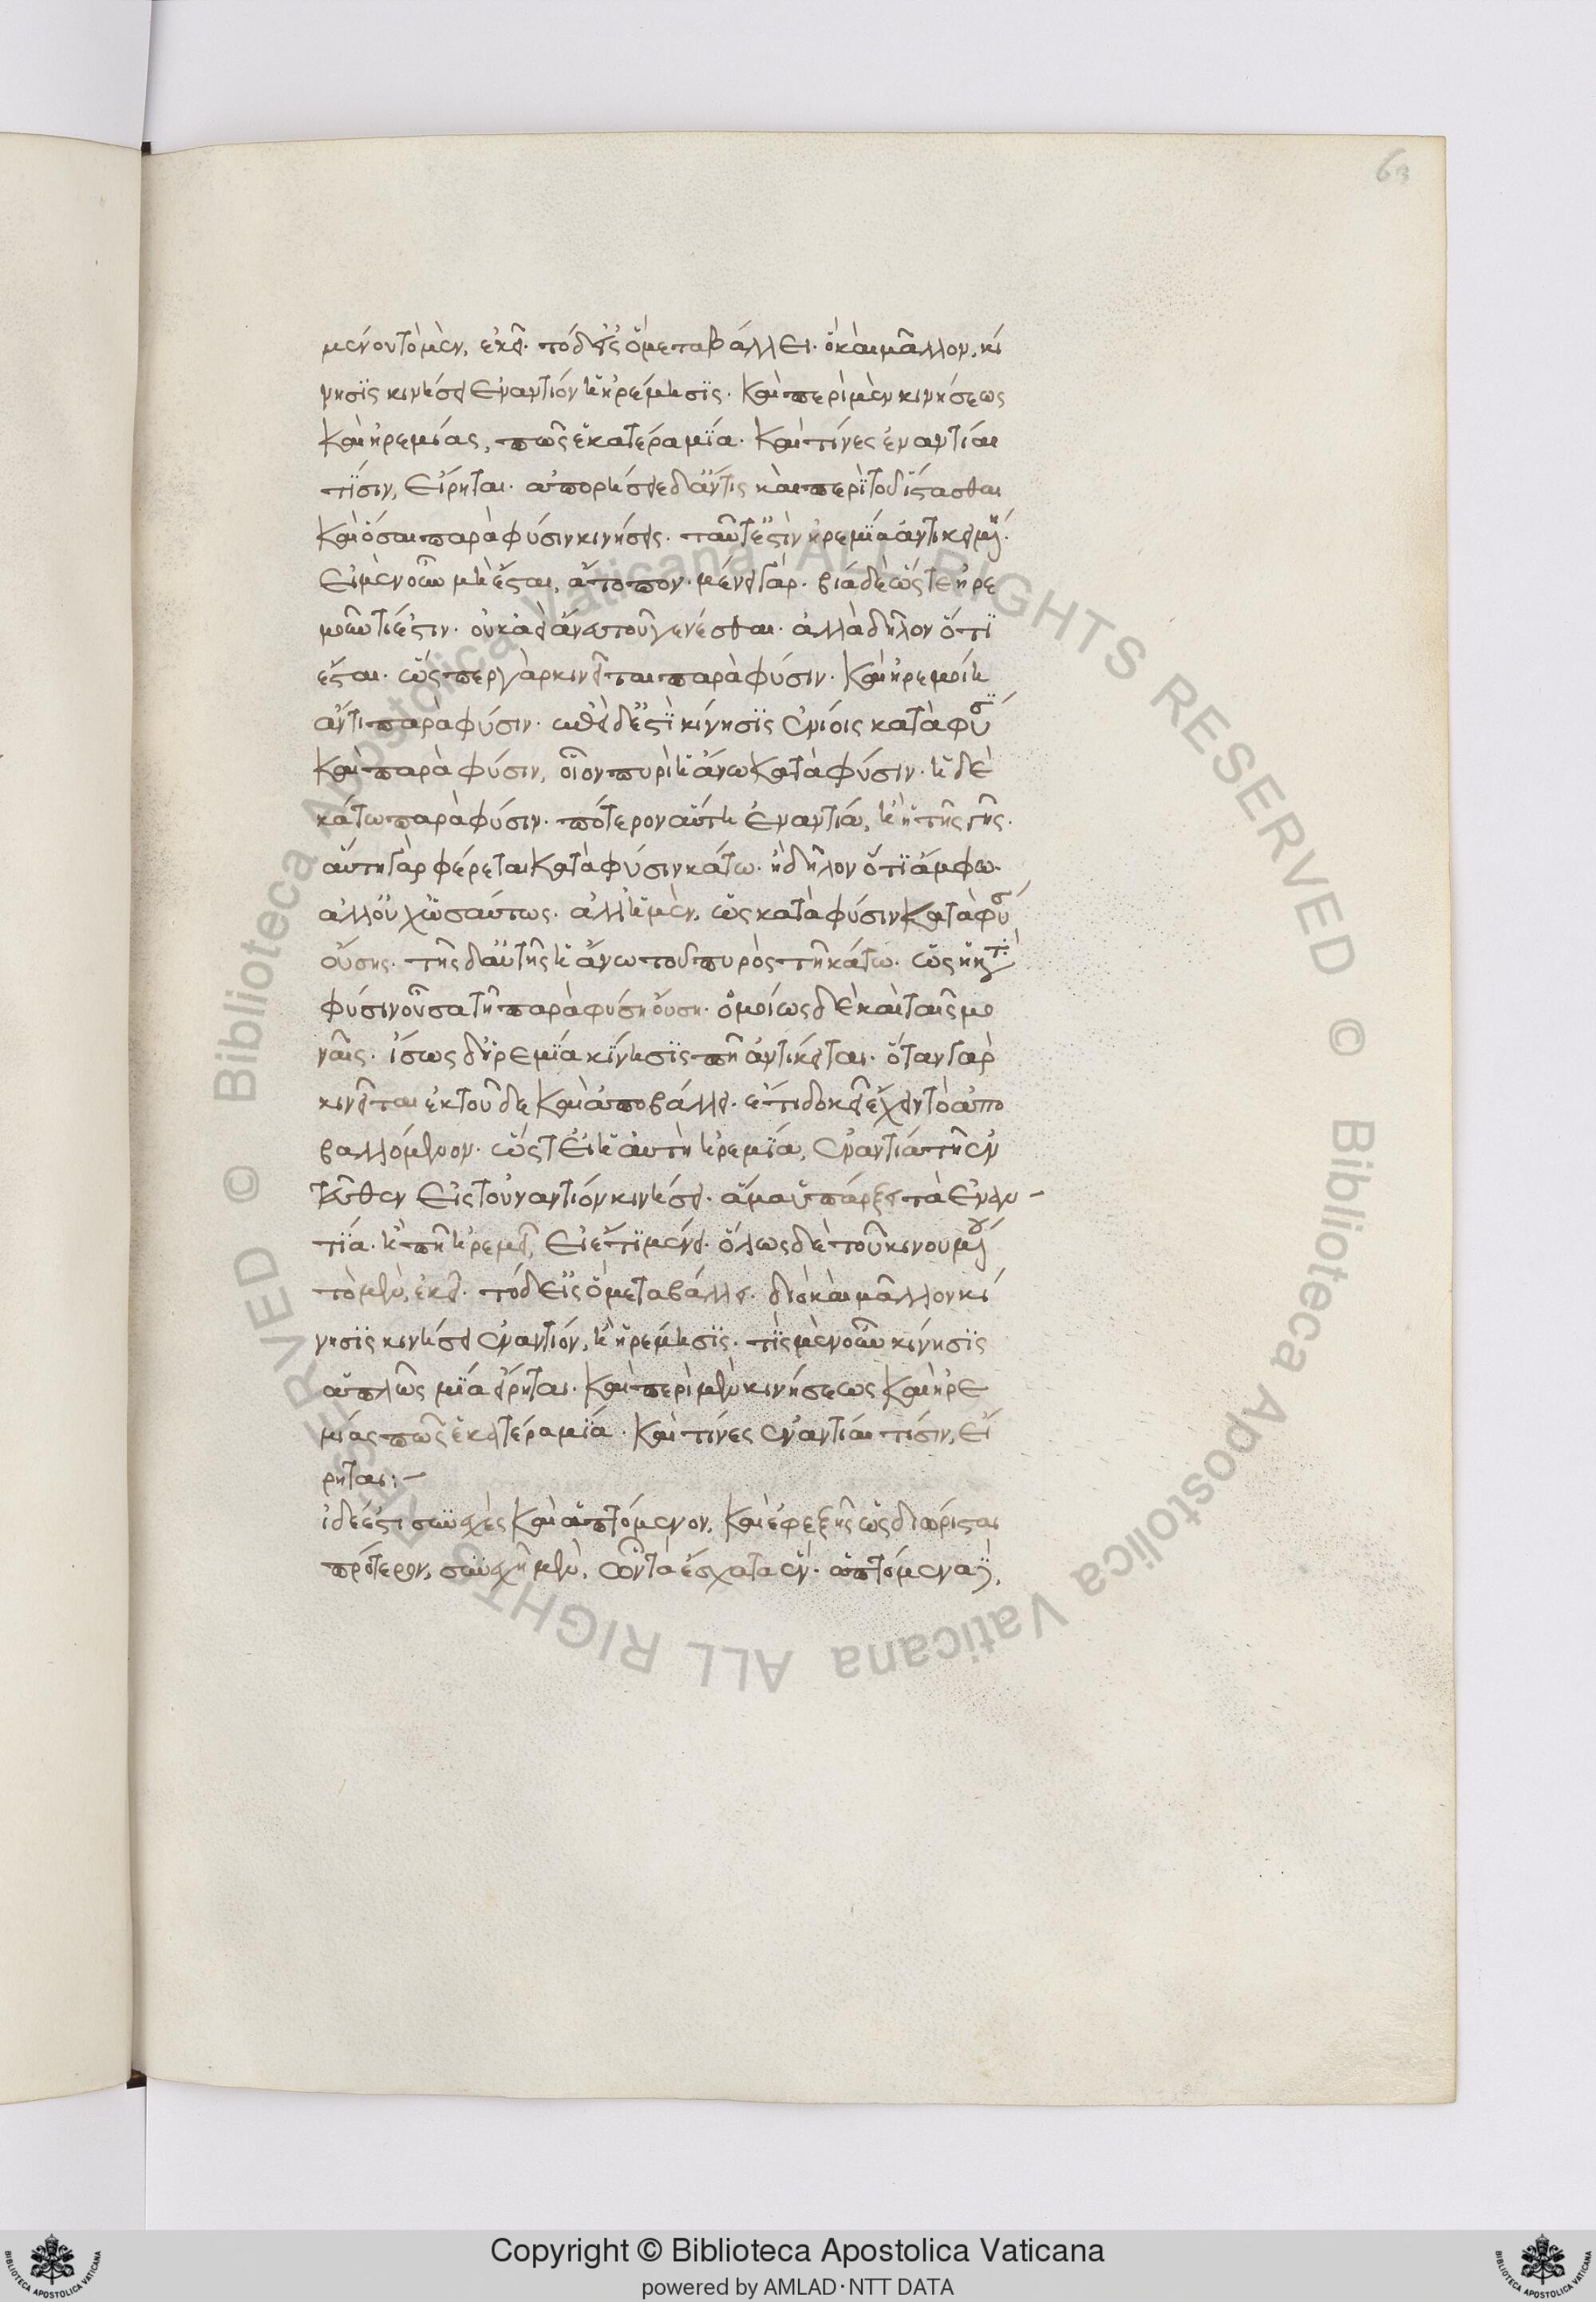 63
μένου τὸ μὲν, ἐκεῖ. τὸ δ' εἰς ὃ μεταβάλλει. ὃ καὶ μᾶλλον, κί
νησϊς κινήσει ἐναντίον ἢ ἠρέμησϊς. καὶ περὶ μὲν κινήσεως
καὶ ἠρεμίας, πῶς ἑκατέρα μϊα. καὶ τίνες ἐναντίαι
τϊσιν, εἴρηται. ἀπορήσειε δ' ἄν τις καὶ περὶ τοῦ ἵστασθαι
καὶ ὅσαι παρὰ φύσιν κινήσεις. ταύτ ἐστὶν ἠρεμϊα ἀντικειμ.
εἰ μὲν οὖν μὴ ἔσται, ἄτοπον. μένει γάρ. βίᾳ δὲ ὥστε ἠρε
μοῦν τι ἐστιν. οὐκ ἀεὶ ἄνευ τοῦ γενέσθαι. ἀλλὰ δῆλον ὅτϊ
ἔσται. ὥσπερ γὰρ κινεῖται παρὰ φύσιν. καὶ ἠρεμοίη
ἄν τι παρὰ φύσιν. ἐπεὶ δ' ἔστϊ κίνησϊς ἐνίοις κατὰ φύσ
καὶ παρὰ φύσιν, οἷον πυρὶ ἡ ἄνω κατὰ φύσιν. ἡ δὲ
κάτω παρὰ φύσιν. πότερον αὕτη ἐναντία, ἢ ἡ τῆς γῆς.
αὕτη γὰρ φέρεται κατὰ φύσιν κάτω. ἢ δῆλον ὅτϊ ἄμφω.
ἀλλ' οὐχ ὡσαύτως. ἀλλ' ἡ μὲν, ὡς κατὰ φύσιν κατὰ φύσ
οὔσης. τῆς δ' αὐτῆς ἡ ἄνω τοῦ πυρὸς τῇ κάτω. ὡς ἡ κατ
φύσιν οὖσα τῇ παρὰ φύση οὔση. ὁμοίως δὲ καὶ ταῖς μο
ναῖς. ἴσως δ' ἠρεμϊα κϊνησϊς πῃ ἀντίκειται. ὅταν γὰρ
κινεῖται ἐκ τοῦδε καὶ ἀποβάλλει. ἔτι δοκεῖ ἔχειν τὸ ἀπο
βαλλόμενον. ὥστ' εἰ ἡ αὐτὴ ἠρεμϊα, ἐναντία τῇ ἐν
τεῦθεν εἰς τοὐναντίον κινήσει. ἅμα ὑπάρξει τὰ ἐναν-
τϊα. ἢ πῃ ἠρεμεῖ, εἰ ἔτϊ μένει. ὅλως δὲ τοῦ κινουμένου
τὸ μὲν, ἐκεῖ. τὸ δ' εἰς ὃ μεταβάλλει. διὸ καὶ μᾶλλον κί
νησϊς κινήσει ἐναντίον, ἢ ἠρέμησϊς. τὶς μὲν οὖν κίνησϊς
ἁπλῶς μϊα εἴρηται. καὶ περὶ μὲν κινήσεως καὶ ἠρε
μίας πῶς ἑκατέρα μϊα. καὶ τίνες ἐναντίαι τίσιν, εἴ
ρηται:-
ἰ δέ ἐστι συνεχὲς καὶ ἁπτόμενον, καὶ ἐφεξῆς ὡς διώρισται
πρότερον, συνεχῆ μὲν, ὧν τὰ ἔσχατα ἕν. ἁπτόμενα
Copyright © Biblioteca Apostolica Vaticana
powered by AMLAD·NTT DATA